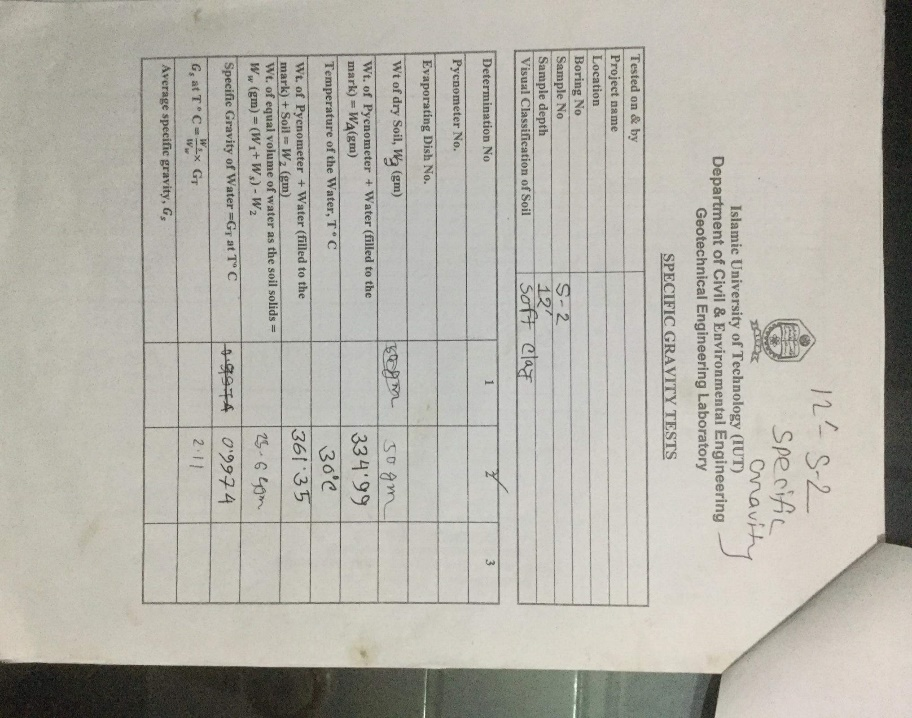 12'- S-2
Specific
Gravity
Islamic University of Technology (IUT)
Department of Civil & Environmental Engineering
Geotechnical Engineering Laboratory
SPECIFIC GRAVITY TESTS
Tested on & by
Project name
Location
Boring No
Sample No S-2
Sample depth 12'
Visual Classification of Soil Soft Clay
Determination No 1 2 3
Pycnometer No.
Evaporating Dish No.
Wt of dry Soil, Ws (gm) 50gm 50 gm
Wt. of Pycnometer + Water (filled to the
mark) = WA(gm) 334.99
Temperature of the Water, T° C 30°C
Wt. of Pycnometer + Water (filled to the
mark) + Soil = W₂ (gm) 361.35
Wt. of equal volume of water as the soil solids =
Ww (gm) = (W₁ + Wₛ) - W₂
Specific Gravity of Water =GT at T° C 0.9974 0.9974
Gₛ at T° C = Wₛ/Ww x GT 2.11
Average specific gravity, Gₛ